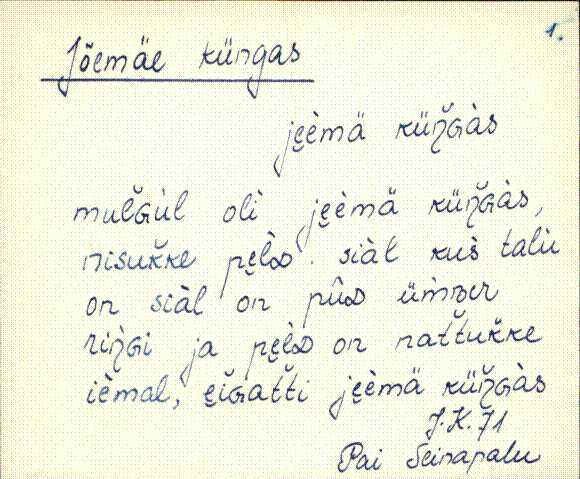 1.
Jõemäe küngas
je̮èmä küŋ̆ɢàs
mul̆ɢùl olì je̮èmä küŋ̆ɢàs,
nisuk̆ke pe̮l̀ᴅ. siàl kus̀ talù
on siàl on pûᴅ üm̀ʙer
riŋ̆ɢi ja pe̮l̀ᴅ on nat̆tuk̆ke
ièmal, e̮ĭɢat̆ti je̮èmä küŋ̆ɢàs
J.K. 71
Pai Seinapalu